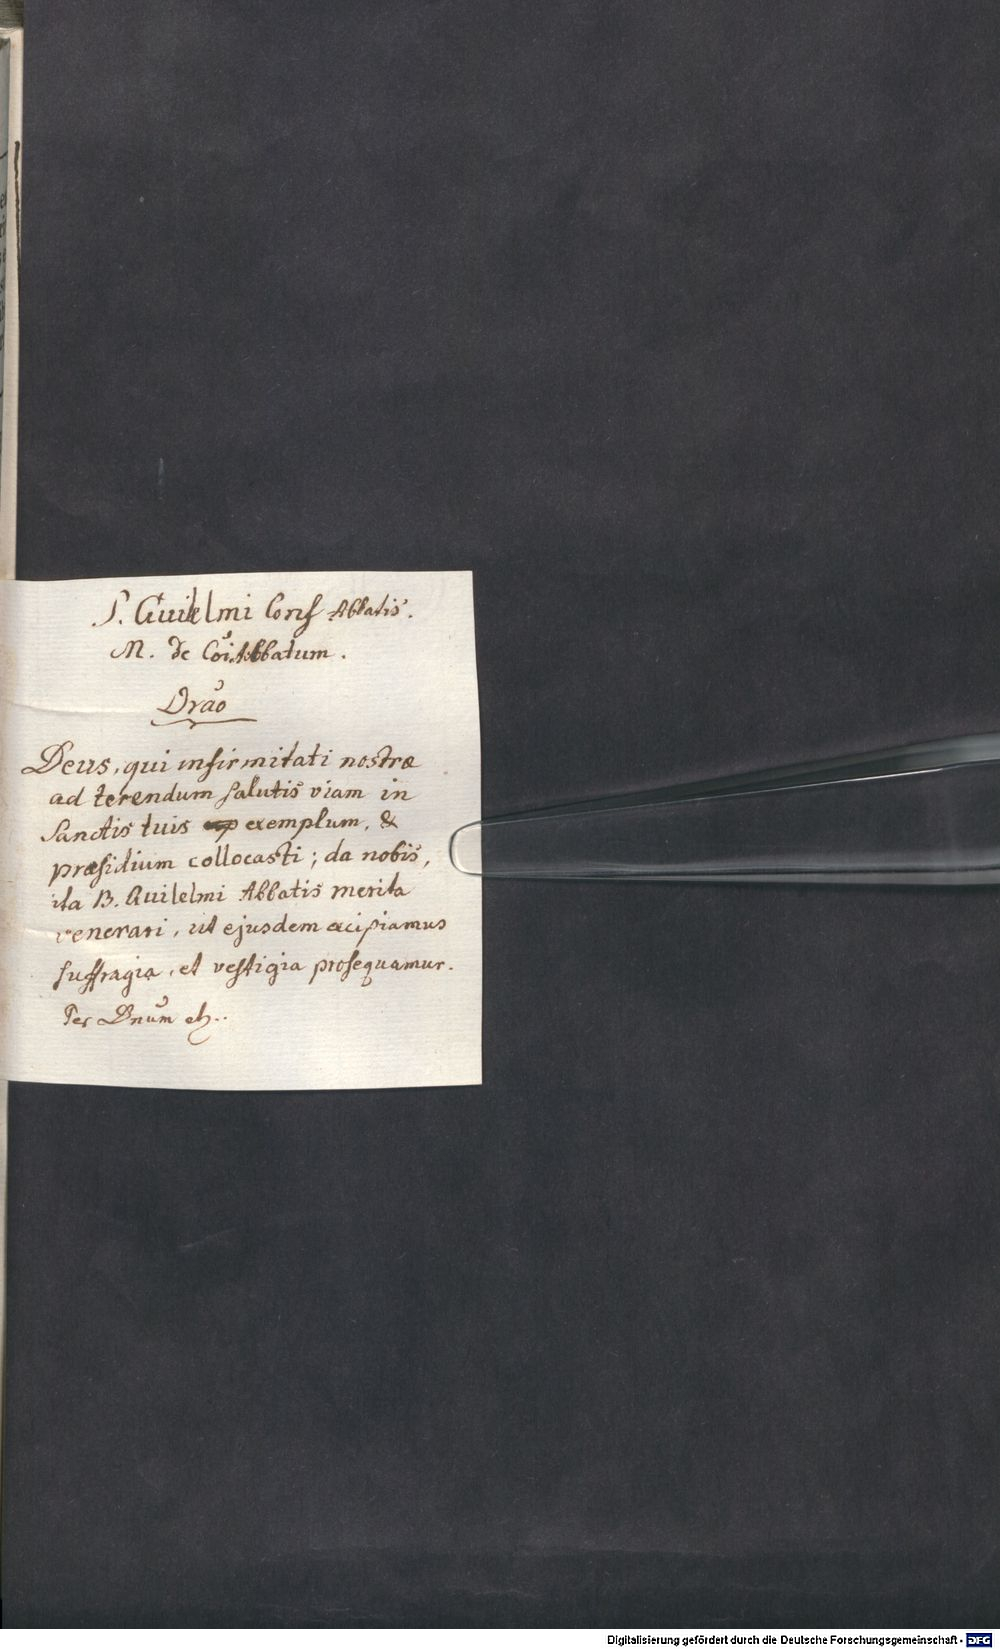 S. Guilelmi Conf Abbatis.
M. de Coi Abbatum.
Orao
Deus, qui infirmitati nostræ
ad terendum salutis viam in
Sanctis tuis exemplum, &
præsidium collocasti; da nobis,
ita B. Guilelmi Abbatis merita
venerari, ut ejusdem excipiamus
suffragia, et vestigia prosequamur.
Per Dnum etc.
Digitalisierung gefördert durch die Deutsche Forschungsgemeinschaft - DFG